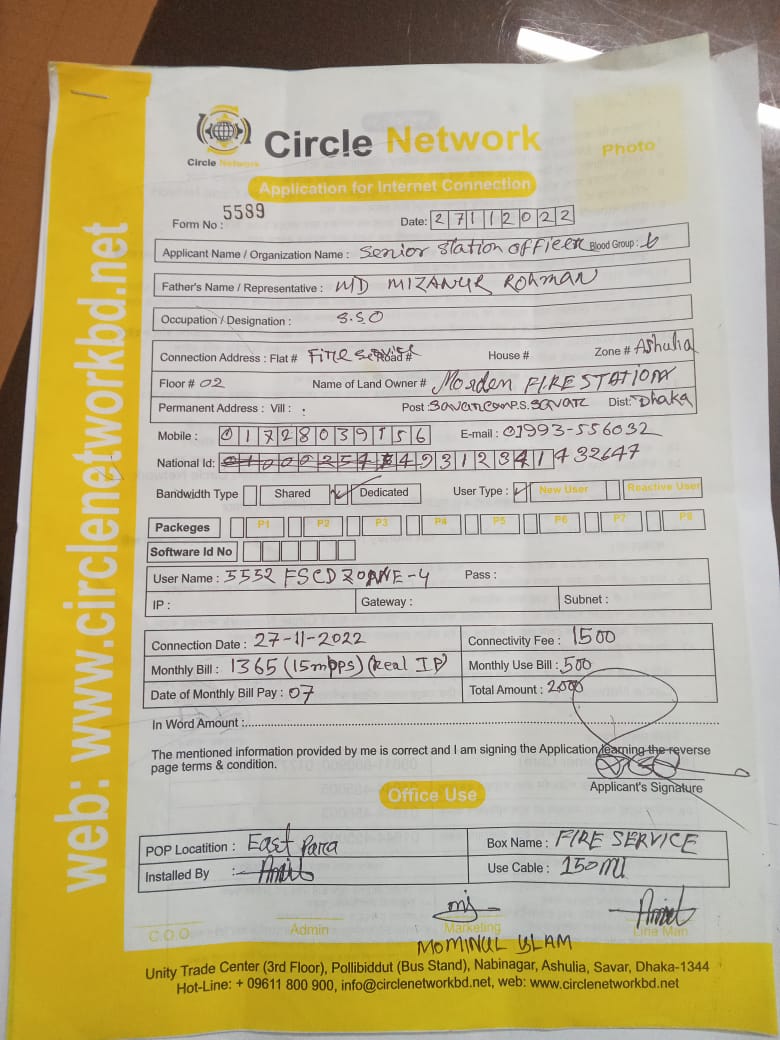 web: www.circlenetworkbd.net
Circle Network
Circle Network
Photo
Application for Internet Connection
Form No : 5589
Date: 27112022
Applicant Name / Organization Name : Senior Station officer Blood Group :
Father's Name / Representative : MD MIZANUR Rohman
Occupation / Designation : S.S.O
Connection Address : Flat # Fire service Road # House # Zone # Ashulia
Floor # 02 Name of Land Owner # Morden FIRE STATION
Permanent Address : Vill : Post : P.S. savar Dist: Dhaka
Mobile : 01728039156 E-mail : 01993-556032
National Id: 432647
Bandwidth Type Shared Dedicated User Type : New User Reactive User
Packeges P1 P2 P3 P4 P5 P6 P7 P8
Software Id No
User Name : 5552 FSCD ZOANE-4 Pass :
IP : Gateway : Subnet :
Connection Date : 27-11-2022 Connectivity Fee : 1500
Monthly Bill : 1365 (15mbps) (Real IP) Monthly Use Bill : 500
Date of Monthly Bill Pay : 07 Total Amount : 2000
In Word Amount :
The mentioned information provided by me is correct and I am signing the Application learning the reverse
page terms & condition.
Applicant's Signature
Office Use
POP Locatition : East Para Box Name : FIRE SERVICE
Installed By : Use Cable : 150MI
C.O.O Admin Marketing Line Man
MOMINUL ISLAM
Unity Trade Center (3rd Floor), Pollibiddut (Bus Stand), Nabinagar, Ashulia, Savar, Dhaka-1344
Hot-Line: + 09611 800 900, info@circlenetworkbd.net, web: www.circlenetworkbd.net